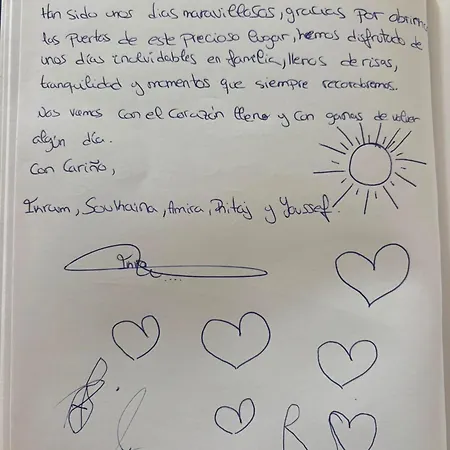 Han sido unos días maravillosos, gracias por abrirnos
las puertas de este precioso lugar, hemos disfrutado de
unos días inolvidables en familia, llenos de risas,
tranquilidad y momentos que siempre recordaremos.
Nos vamos con el corazón lleno y con ganas de volver
algún día.
Con cariño,
Inram, Soukaina, Amira, Ritaj y Youssef.
R